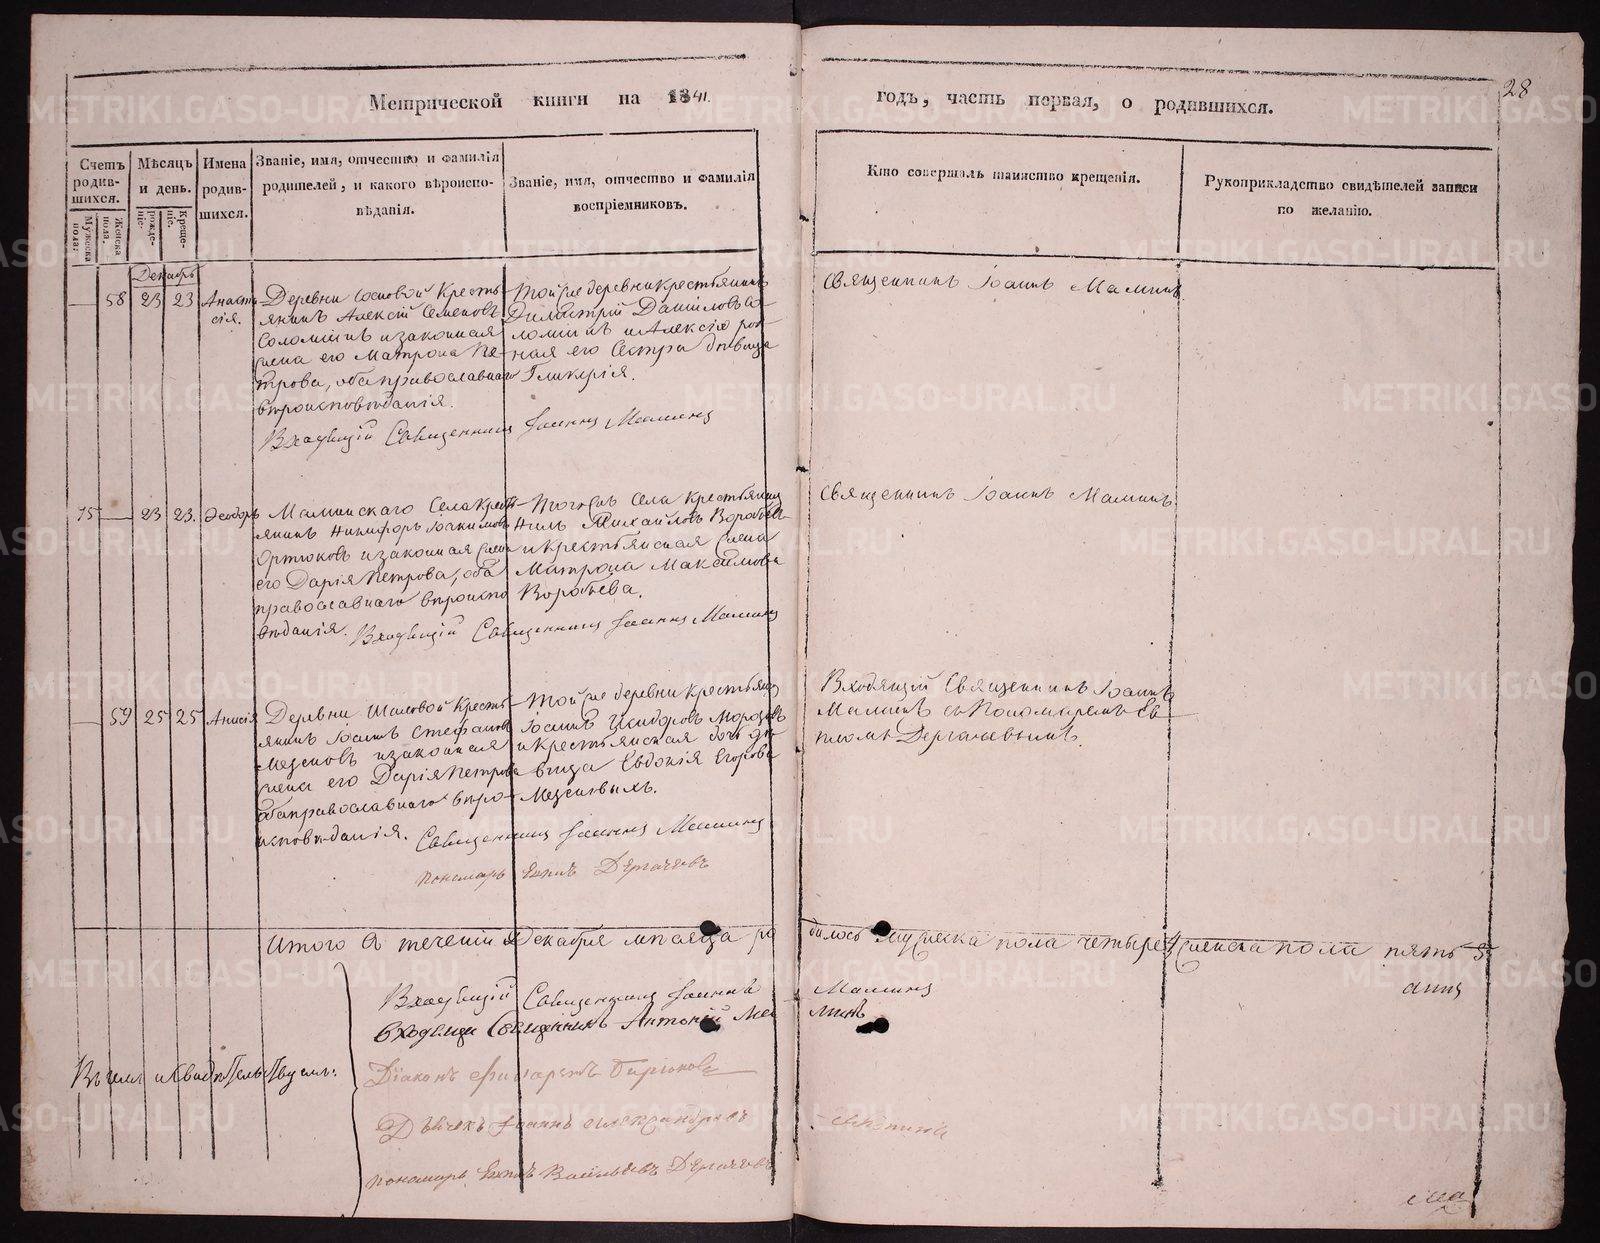 Метрической книги на 1841. годъ, часть первая, о родившихся.
28
Счетъ родив-шихся.
Мужеска пола.
Женска пола.
Мѣсяцъ и день.
рожде-ніе.
креще-ніе.
Имена родив-шихся.
Званіе, имя, отчество и фамилія
родителей, и какого вѣроиспо-
вѣданія.
Званіе, имя, отчество и фамилія
воспріемниковъ.
Кто совершалъ таинство крещенія.
Рукоприкладство свидѣтелей записи
по желанію.
Декабрь
58 23 23 Анаста-
сія.
Деревни Сосновой Кресть-
янинъ Алексій Семеновъ
Соломинъ и законная
жена его Матрона Пе-
трова, оба православнаго
вѣроисповѣданія.
Той же деревни крестьянинъ
Димитрій Даниловъ Со-
ломинъ и Алексія род-
ная его Сестра дѣвица
Гликерія.
Священникъ Іоаннъ Маминъ
Входящій Священникъ Іоаннъ Маминъ
45 23 23. Ѳеодоръ
Маминскаго Села Кресть-
янинъ Никифоръ Іоакимовъ
Ортюковъ и законная жена
его Дарія Петрова, оба
православнаго вѣроиспо
вѣданія.
Того же Села крестьянинъ
Нилъ Михайловъ Воробьев
и крестьянская жена
Матрона Максимова
Воробьева.
Священникъ Іоаннъ Маминъ
Входящій Священникъ Іоаннъ Маминъ
59 25 25 Анисія
Деревни Шиловой Кресть-
янинъ Іоаннъ Стефановъ
Мезеновъ и законная
жена его Дарія Петрова
оба православнаго вѣро-
исповѣданія.
Той же деревни крестьянинъ
Іоаннъ Исидоровъ Морозовъ
и крестьянская дочь дѣ-
вица Евдокія Егорова
Мезеновыхъ.
Входящій Священникъ Іоаннъ
Маминъ съ Пономаремъ Ев-
Дергачевымъ.
Священникъ Іоаннъ Маминъ
пономарь Дергачевъ
Итого въ теченіи Декабря мѣсяца родилось мужеска пола четыре 4 женска пола пять 5
Входящій Священникъ Іоаннъ Маминъ
Входящій Священникъ Антоній Маминъ
Въ чемъ и свидѣтельствуемъ:
Діаконъ Бирюковъ
Дьячекъ Іоаннъ Александровъ
пономарь Васильевъ Дергачевъ
METRIKI.GASO-URAL.RU